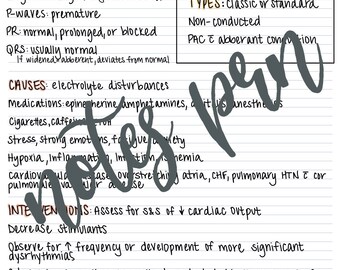 P-waves: premature
PR: normal, prolonged, or blocked
QRS: usually normal
If widened, abberent, deviates from normal
TYPES: classic or standard
Non-conducted
PAC c̄ abberant conduction
CAUSES: electrolyte disturbances
Medications: epinepherine, amphetamines, digitalis, anesthesias
Cigarettes, caffeine
Stress, strong emotions, fatigue, anxiety
Hypoxia, Inflammation, Infection, Ischemia
Cardiovascular disease, overstretching atria, CHF, pulmonary HTN c̄ cor
pulmonale, valvular disease
INTERVENTIONS: Assess for s&s of ↓ cardiac output
Decrease stimulants
Observe for ↑ frequency or development of more significant
dysrhythmias
notes prn